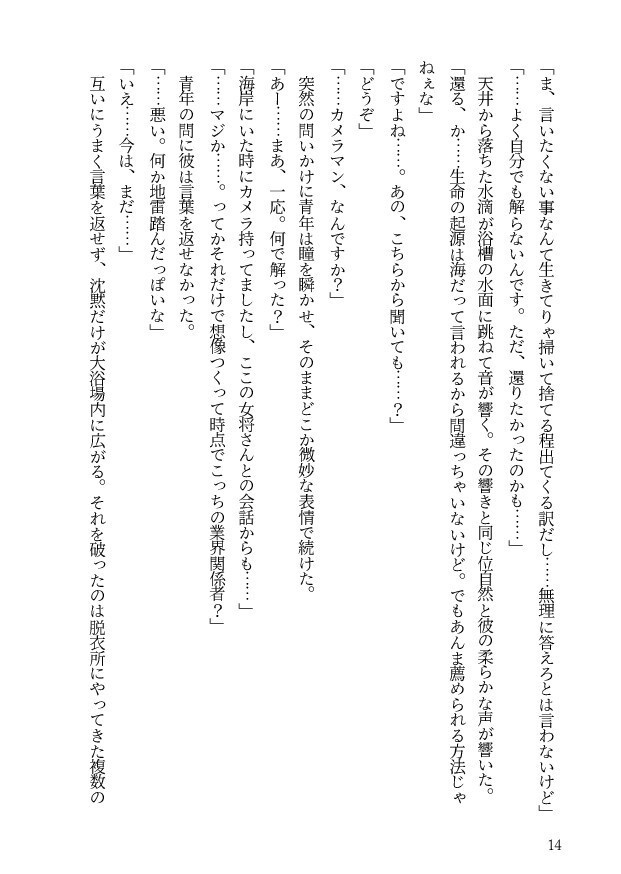 「ま、言いたくない事なんて生きてりゃ掃いて捨てる程出てくる訳だし……無理に答えろとは言わないけど」
「……よく自分でも解らないんです。ただ、還りたかったのかも……」
　天井から落ちた水滴が浴槽の水面に跳ねて音が響く。その響きと同じ位自然と彼の柔らかな声が響いた。
「還る、か……生命の起源は海だって言われるから間違っちゃいないけど。でもあんま薦められる方法じゃ
ねぇな」
「ですよね……。あの、こちらから聞いても……？」
「どうぞ」
「……カメラマン、なんですか？」
　突然の問いかけに青年は瞳を瞬かせ、そのままどこか微妙な表情で続けた。
「あー……まあ、一応。何で解った？」
「海岸にいた時にカメラ持ってましたし、ここの女将さんとの会話からも……」
「……マジか……。ってかそれだけで想像つくって時点でこっちの業界関係者？」
　青年の問に彼は言葉を返せなかった。
「……悪い。何か地雷踏んだっぽいな」
「いえ……今は、まだ……」
　互いにうまく言葉を返せず、沈黙だけが大浴場内に広がる。それを破ったのは脱衣所にやってきた複数の
14